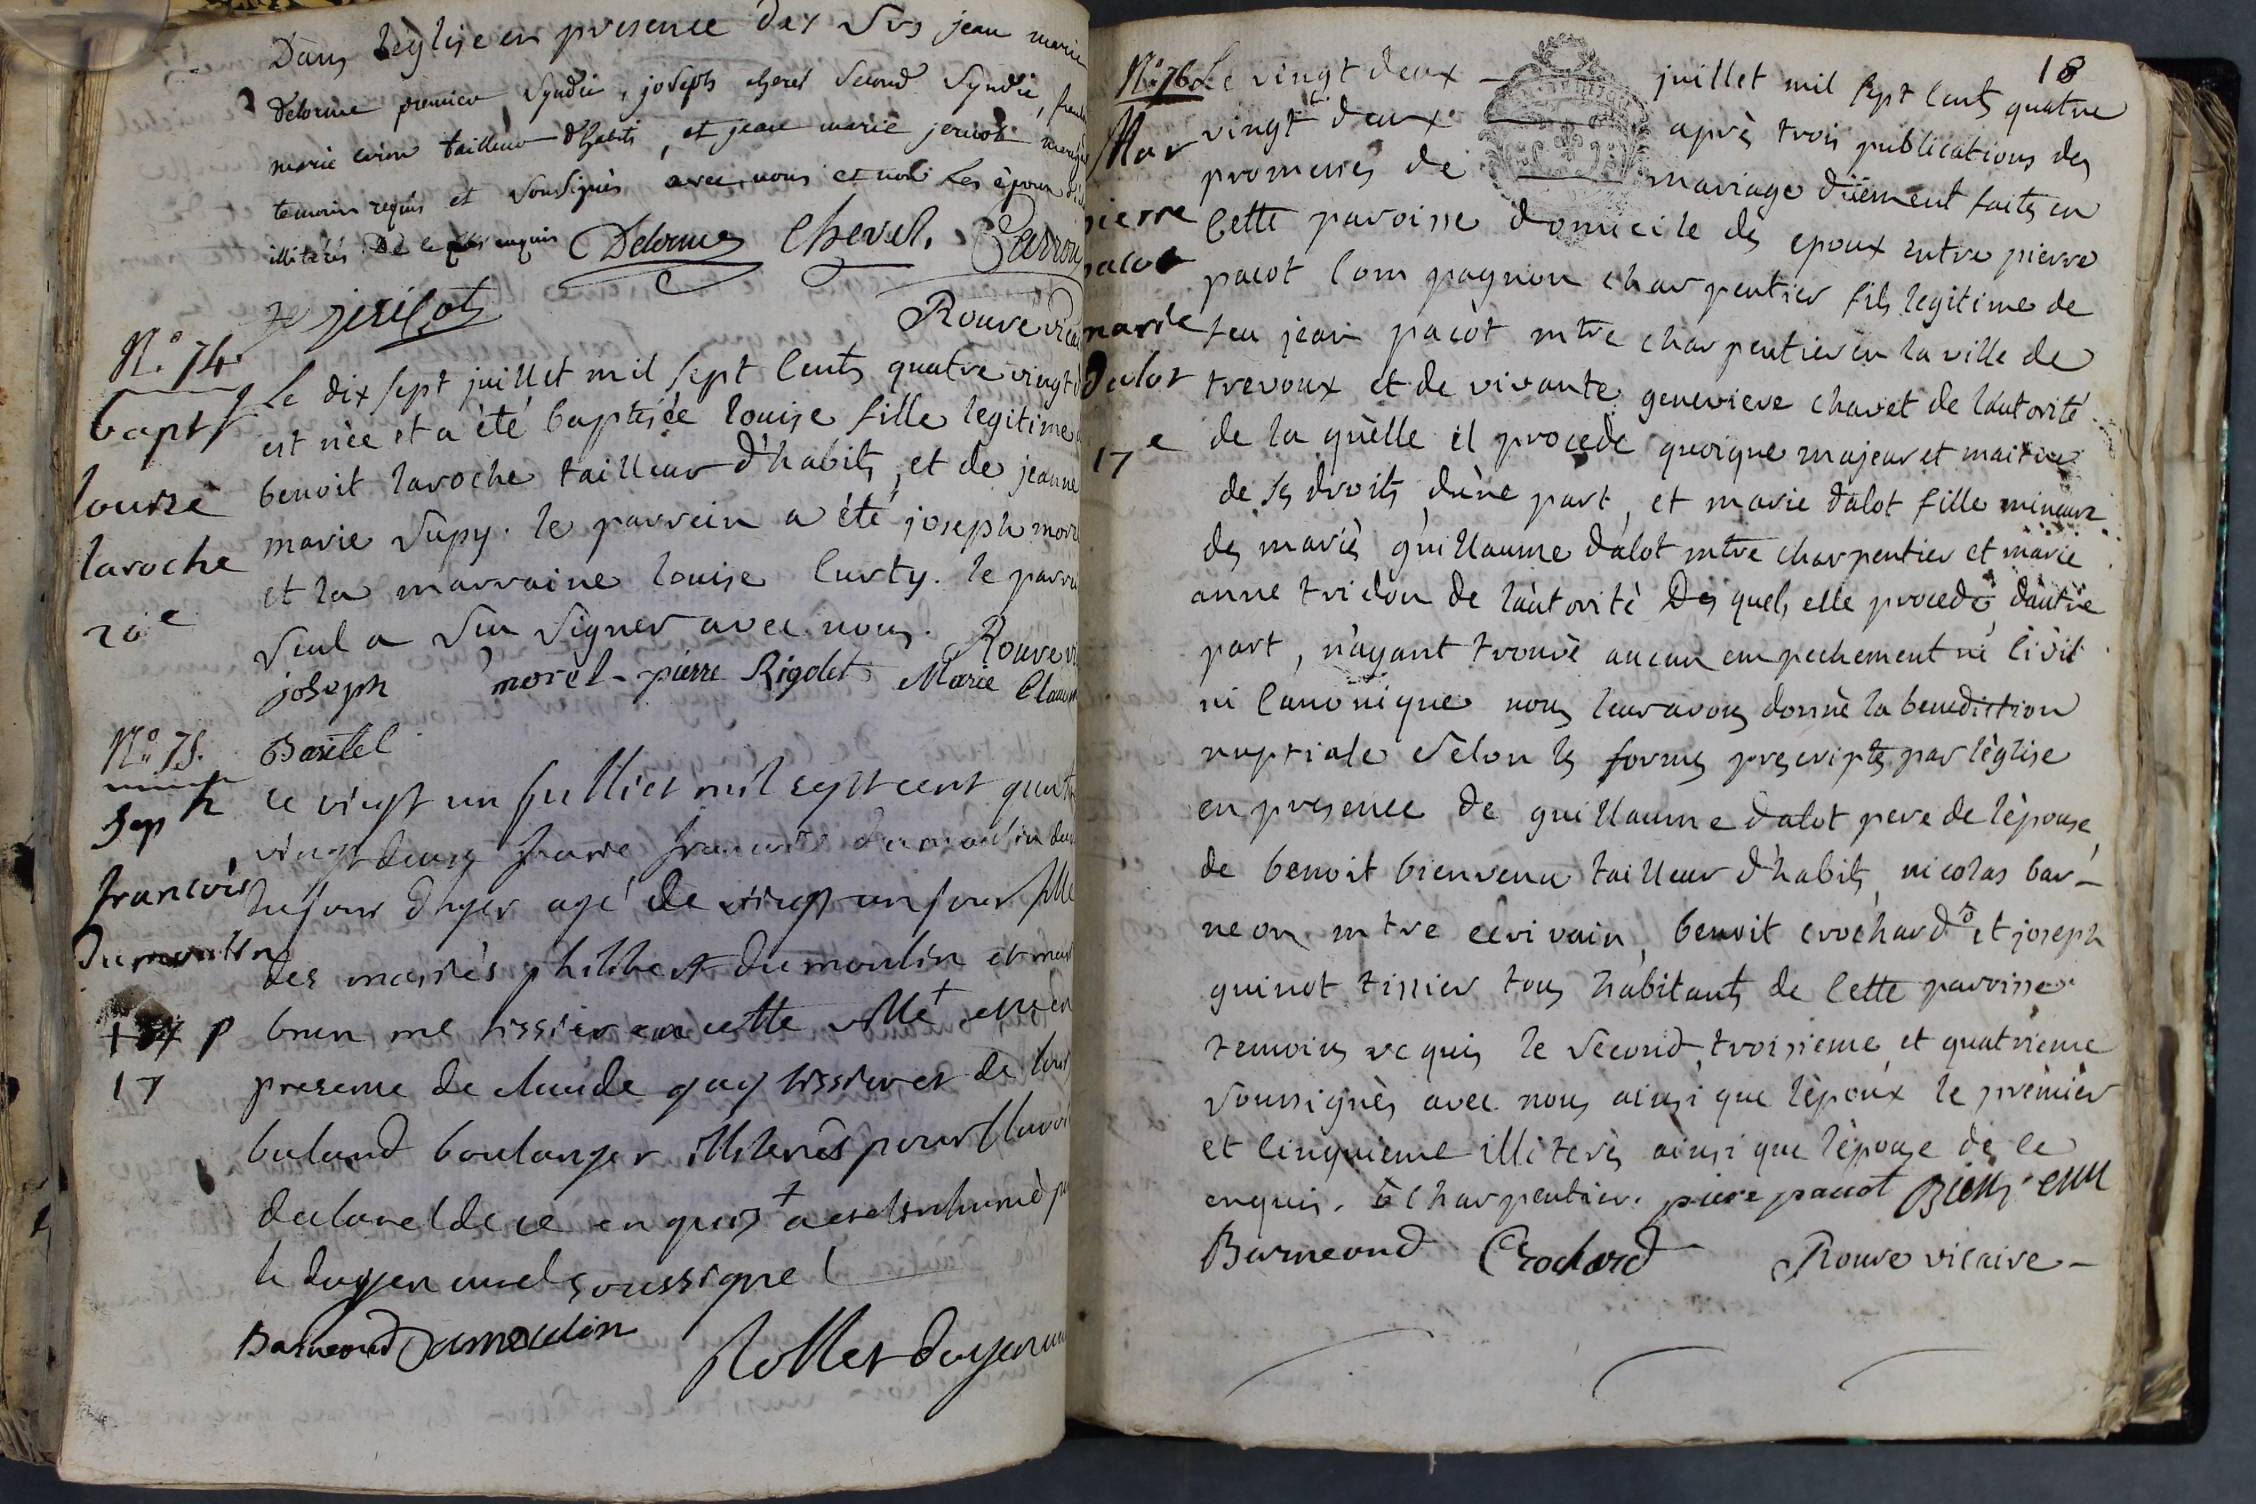 Dans l'église en presence des Srs jean marie
delorme premier syndic, joseph cheret second syndic,
marie tailleur d'habits, et jean marie jericot
temoins requis et soussignés avec nous et non les époux
illiterés de ce enquis Delorme Cheret.
jericot
Rouve vicaire
N.° 74.
bapt
louise
laroche
20e
Le dix sept juillet mil sept cents quatre vingt
est née et a été baptisée louise fille legitime
benoit laroche tailleur d'habits, et de jeanne
marie supy. le parrein a été joseph morel
et la marraine louise curty. le parrein
seul a sçu signer avec nous. Rouve
joseph morel pierre Rigolet Marie
Bastel
N.° 75.
sep
francois
dumoulin
+ p
17
ce vingt un juillet mil sept cent quatre
vingt deux francois dumoulin
du jour d'hyer agé de vingt un jour fille
des mariés philibert dumoulin et
brun me tissier en cette ville +
presence de claude gay tissier et de
buland boulanger illiterés pour l'avoir
declaré de ce enquis + a eté inhumé par
le doyen curé soussigné
Barneoud Dumoulin
Rollet doyen curé
18
N.° 76.
Mar
pierre
pacot
marie
dalot
17e
Le vingt deux juillet mil sept cents quatre
vingt deux après trois publications des
promesses de mariage düement faites en
cette paroisse domicile des epoux entre pierre
pacot compagnon charpentier fils legitime de
feu jean pacot mtre charpentier en la ville de
trevoux et de vivante genevieve chavet de l'autorité
de la quelle il procede quoique majeur et maitre
de ses droits d'une part, et marie dalot fille mineure
des mariés guillaume dalot mtre charpentier et marie
anne tridon de l'autorité des quels elle procede d'autre
part, n'ayant trouvé aucun empechement ni civil
ni canonique nous leur avons donné la benediction
nuptiale selon les formes prescriptes par l'église
en presence de guillaume dalot pere de l'épouse,
de benoit bienvenu tailleur d'habits, nicolas bar-
neon mtre ecrivain, benoit crochard õ et joseph
guinot tissier tous habitants de cette paroisse
temoins requis le second, troisieme et quatrieme
soussignés avec nous ainsi que l'époux le premier
et cinquieme illiterés ainsi que l'épouse de ce
enquis. õ charpentier. piere pacot Bienvenu
Barneoud Crochard Rouve vicaire